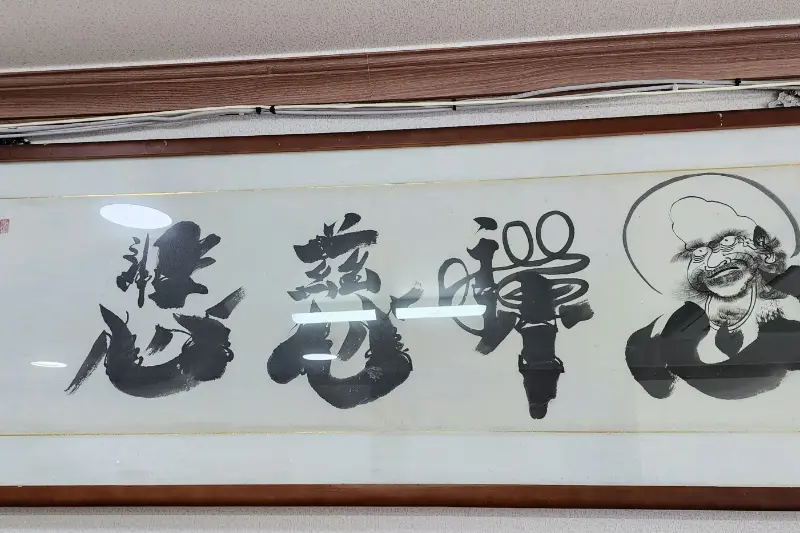 禪慈悲